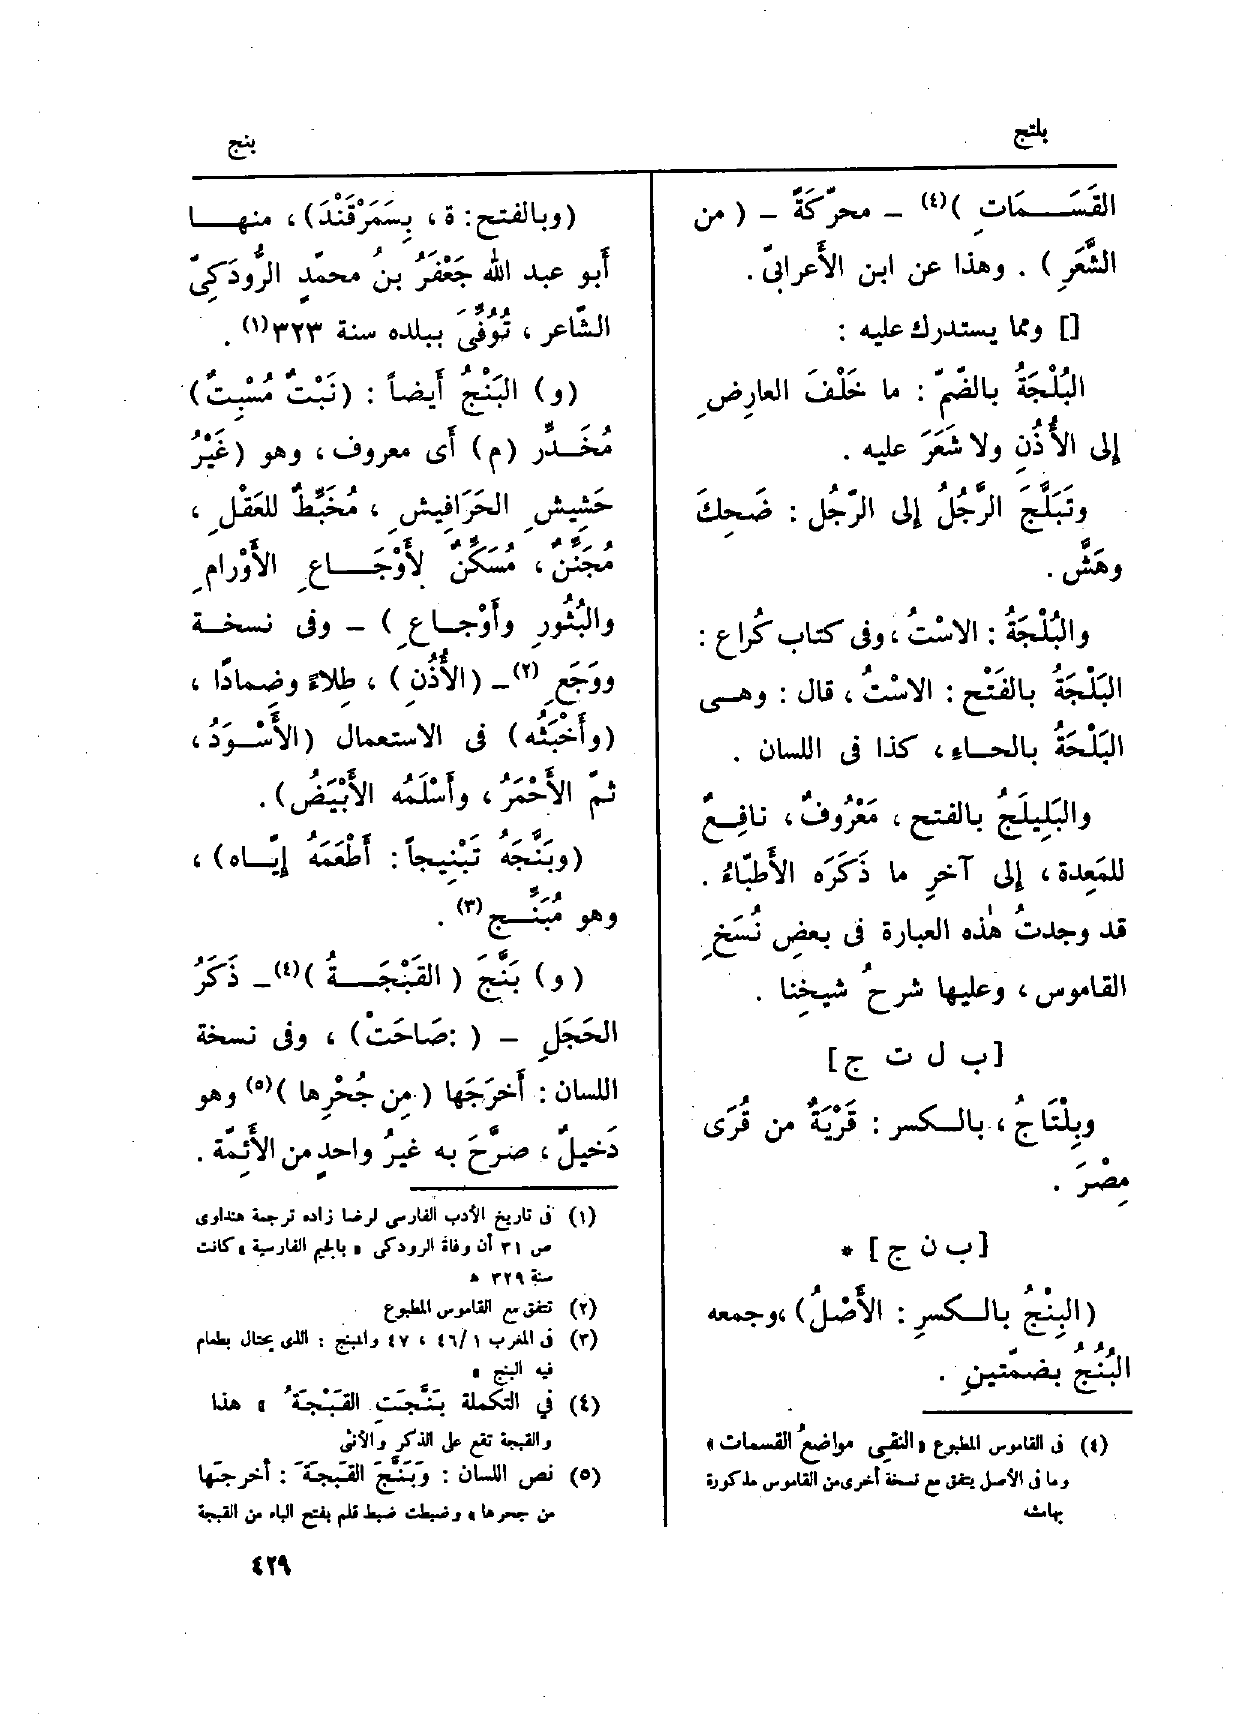 بلتج
بنج
القَسَمَاتِ )(٤) – محرّكَةً – ( من
الشَّعَرِ ) . وهذا عن ابن الأَعرابىّ .
[] ومما يستدرك عليه :
البُلْجَةُ بالضّمّ : ما خَلْفَ العارِضِ
إلى الأُذُنِ ولا شَعَرَ عليه .
وتَبَلَّجَ الرَّجُلُ إلى الرّجُلِ : ضَحِكَ
وهَشَّ .
والبُلْجَةُ : الاسْتُ ، وفى كتاب كُراع :
البَلْجَةُ بالفَتْحِ : الاسْتُ ، قال : وهــى
البَلْحَةُ بالحــاءِ ، كذا فى اللسان .
والبَلِيلَجُ بالفتح ، مَعْرُوفٌ ، نافِــعٌ
للمَعِدة ، إلى آخرِ ما ذَكَرَه الأَطبّاءُ .
قد وجدتُ هٰذه العبارة فى بعضِ نُسَخِ
القاموس ، وعليها شرحُ شيخِنا .
[ ب ل ت ج ]
وبِلْتَاجُ ، بالــكسر : قَرْيَةٌ من قُرَى
مِصْرَ .
[ ب ن ج ] *
( البِنْجُ بالــكسرِ : الأَصْلُ ) ، وجمعه
البُنُجُ بضمّتينِ .
(٤) فى القاموس المطبوع « النقىِ مواضعُ القسمات »
وما فى الأصل يتفق مع نسخة أخرى من القاموس مذكورة
بهامشه
( وبالفتح : ة ، بِسَمَرْقَنْدَ ) ، منهــا
أَبو عبد الله جَعْفَرُ بنُ محمّدٍ الرُّودَكِىّ
الشّاعر ، تُوُفِّىَ ببلده سنة ٣٢٣(١) .
( و ) البَنْجُ أَيضاً : ( نَبْتٌ مُسْبِتٌ )
مُخَــدِّر ( م ) أَى معروف ، وهو ( غَيْرُ
حَشِيشِ الحَرَافِيشِ ، مُخَبِّطٌ للعَقْلِ ،
مُجَنِّنٌ ، مُسَكِّنٌ لأَوْجَــاعِ الأَوْرامِ
والبُثُورِ وأَوْجــاعِ ) – وفى نسخــة
ووَجَعِ (٢)– ( الأُذُنِ ) ، طِلاءً وضِمادًا ،
( وأَخْبَثُه ) فى الاستعمال ( الأَسْــوَدُ ،
ثمّ الأَحْمَرُ ، وأَسْلَمُه الأَبْيَضُ ) .
( وبَنَّجَهُ تَبْنِيجاً : أَطْعَمَهُ إِيّــاه ) ،
وهو مُبَنَّــج (٣) .
( و ) بَنَّجَ ( القَبْجَــةُ )(٤)– ذَكَرُ
الحَجَلِ – ( : صَاحَتْ ) ، وفى نسخة
اللسان : أَخرَجَها ( مِن جُحْرِها )(٥) وهو
دَخيلٌ ، صرَّحَ به غيرُ واحدٍ من الأَئِمّة .
(١) فى تاريخ الأدب الفارسى لرضا زاده ترجمة هنداوى
ص ٣١ أن وفاة الرودكى « بالجيم الفارسية » كانت
سنة ٣٢٩ ه
(٢) تتفق مع القاموس المطبوع
(٣) فى المغرب ٤٦/١ ، ٤٧ والمبنج : الذى يحتال بطعام
فيه البنج »
(٤) في التكملة بَنَّجَتِ القَبْجَةُ » هذا
والقبجة تقع على الذكر والأنثى
(٥) نص اللسان : وَبَنَّجَ القَبجةَ : أخرجَها
من جحرها » وضبطت ضبط قلم بفتح الباء من القبجة
٤٢٩